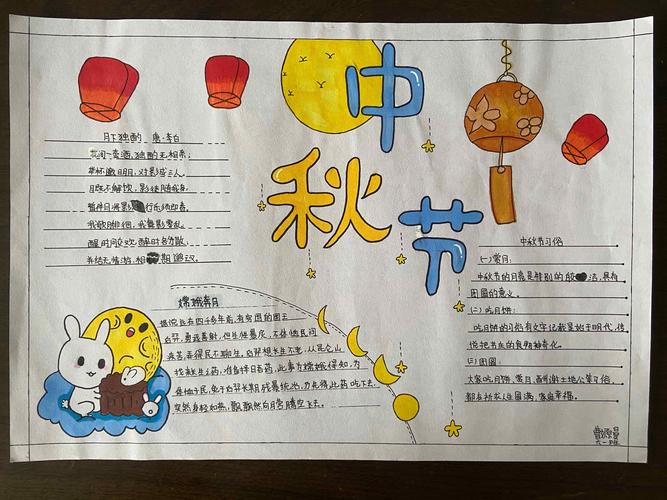 中秋节
月下独酌 唐·李白
花间一壶酒,独酌无相亲;
举杯邀明月,对影成三人。
月既不解饮,影徒随我身。
暂伴月将影,行乐须及春。
我歌月徘徊,我舞影零乱。
醒时同交欢,醉时各分散。
永结无情游,相期邈云汉。
嫦娥奔月
据说远古四千多年前,有穷国的国王
后羿,勇猛善射,但生性暴戾,不体恤民间
疾苦,弄得民不聊生。后羿想长生不老,从昆仑山
找来长生之药,准备择日吞药,此事为嫦娥得知,为
百姓,免于后羿长期残暴统治,
突然身轻如燕,飘飘然向月宫腾空飞去。
中秋节习俗
(一)赏月:
中秋节的月亮是特别的,具有
团圆的意义。
(二)吃月饼:
吃月饼的习俗有文字记载是始于明代,传
说把
(三)团圆:
大家吃月饼、赏月、酬谢土地公等习俗,
都在祈求人生圆满、家庭幸福。
六一班